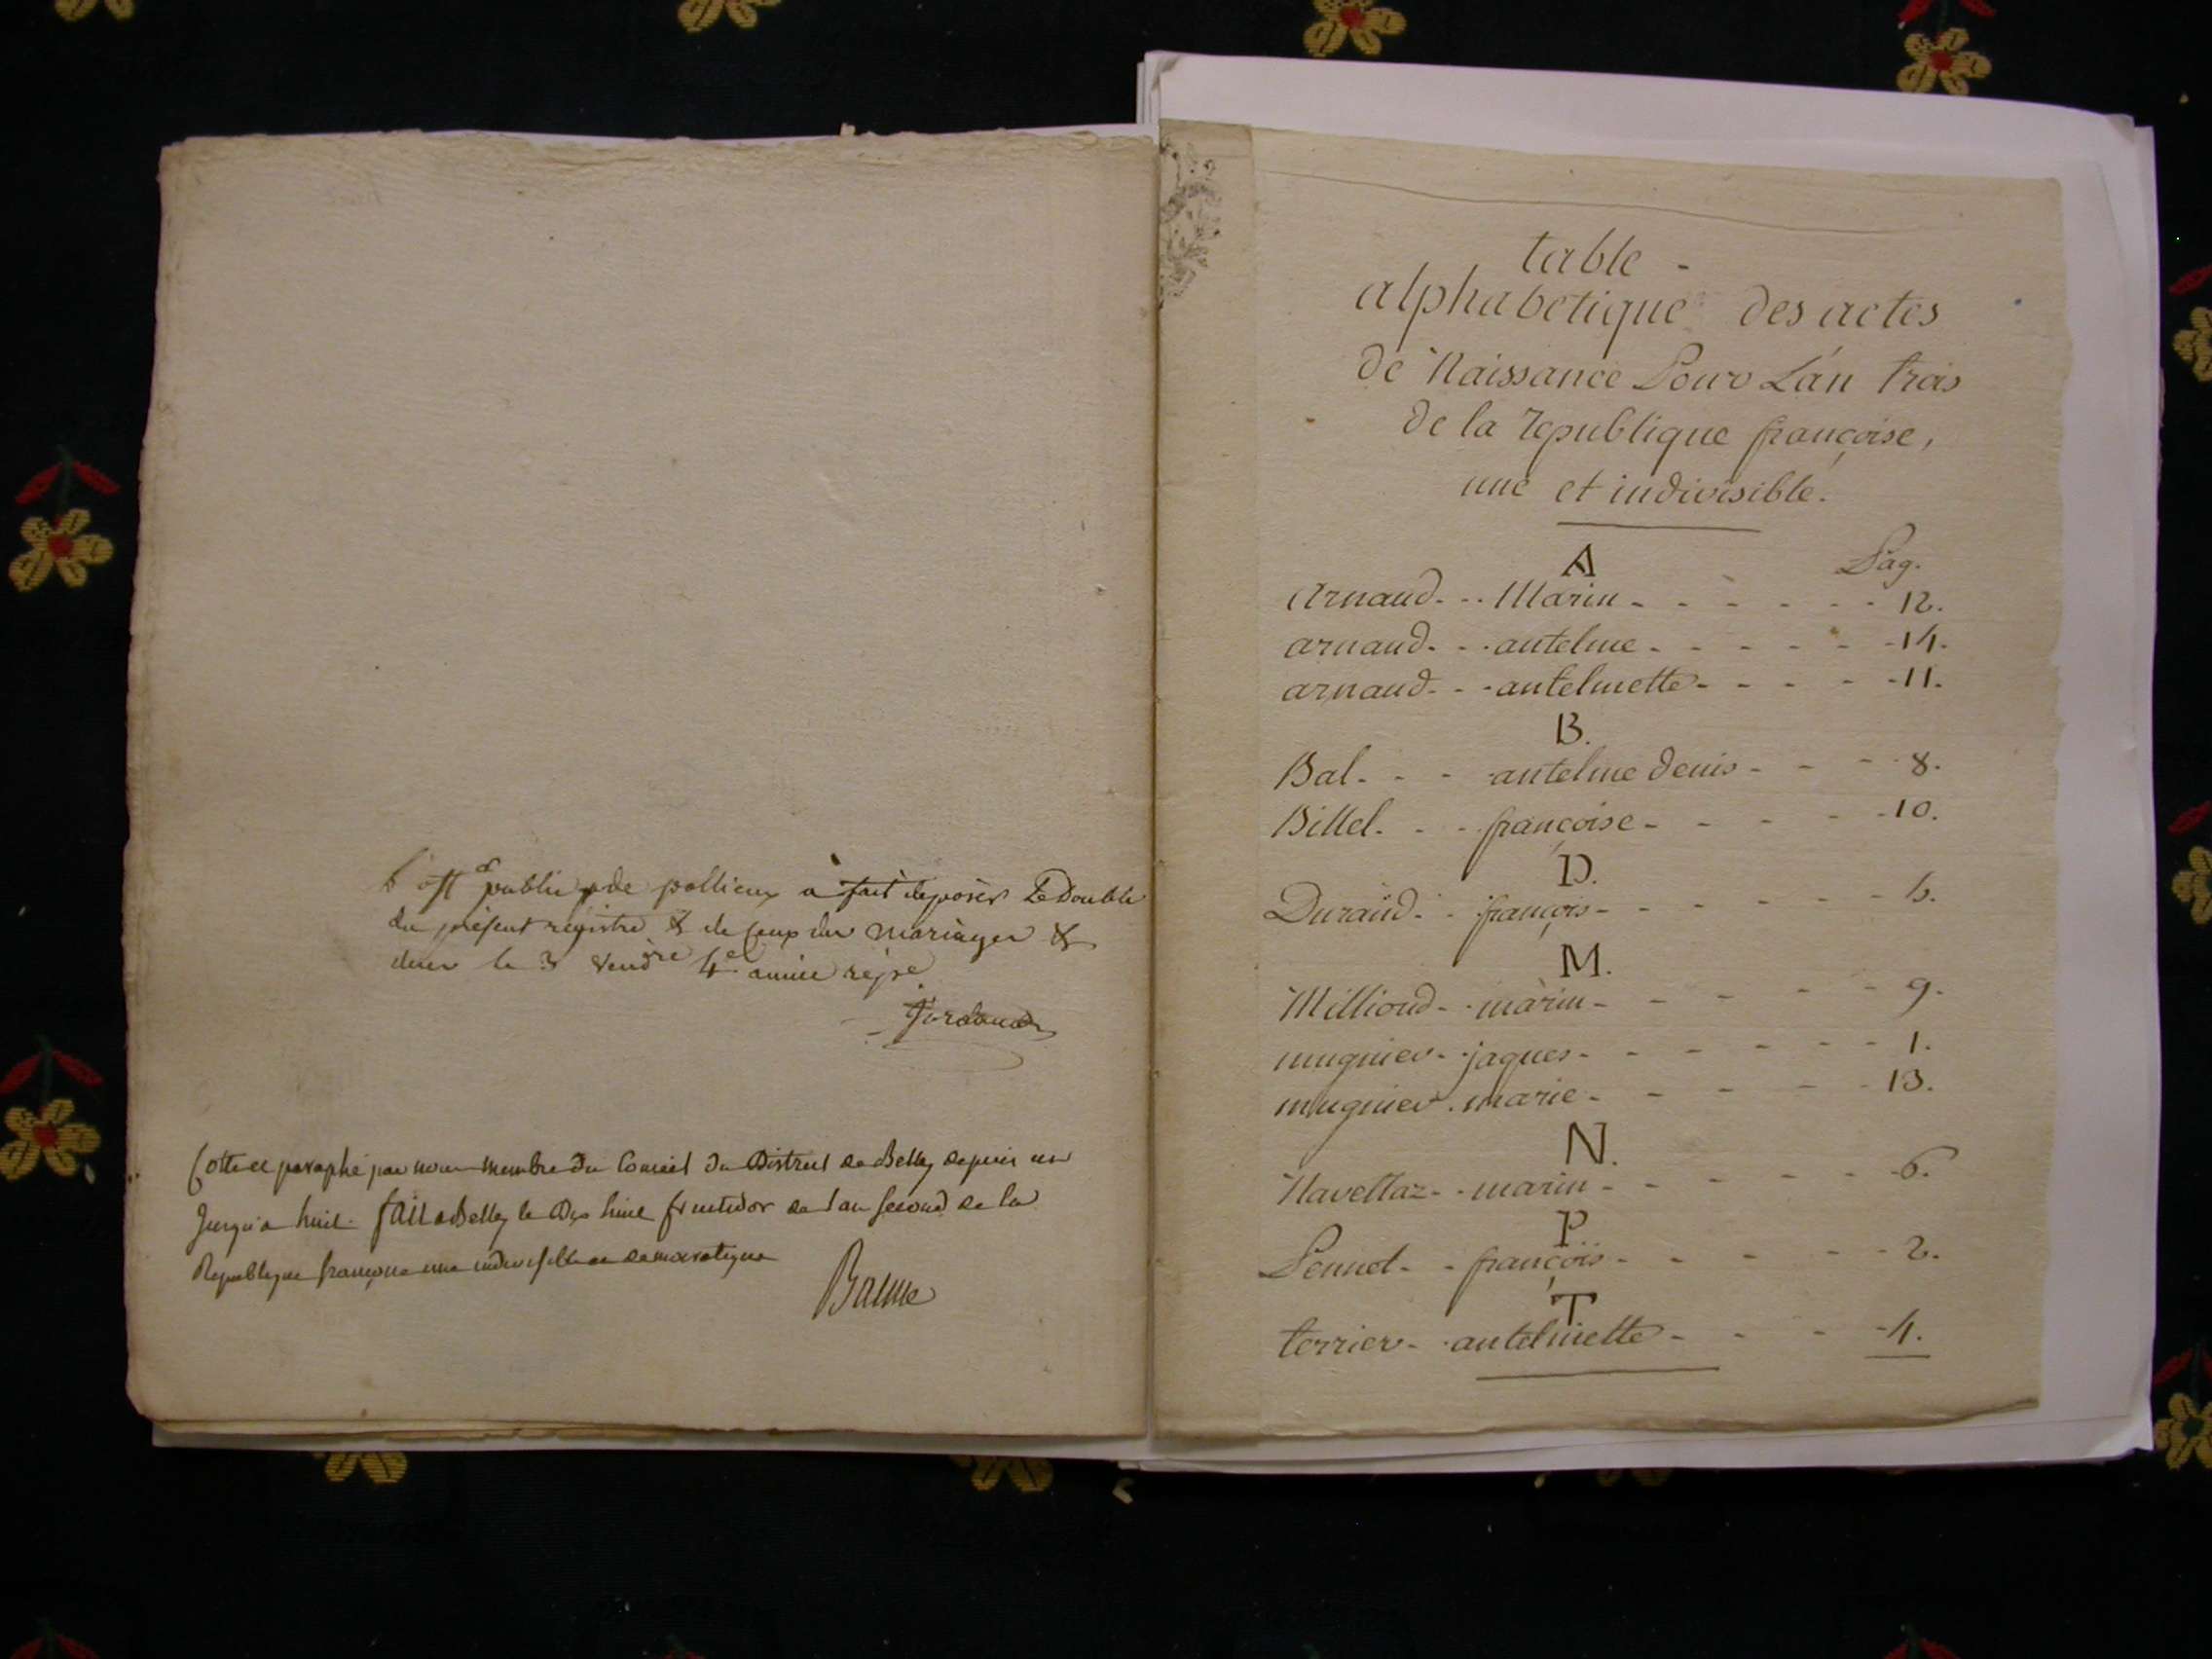 L'off er public de pollieux a fait deposer Le Double
du présent registre & de ceux des mariages &
deces le 3 Vend re 4 e année rép e.
Cotté et paraphé par nous membre du Conseil du District de Belley depuis un
Jusqu'a huit. fait a Belley le Dix huit fructidor de l'an second de la
Republique françoise une indivisible et democratique
Baume
table
alphabetique des actes
de Naissance Pour L'an trois
de la republique françoise,
une et indivisible.
A Pag.
Arnaud - - - Marin - - - - - - 12.
arnaud - - - antelme - - - - - - 14.
arnaud - - - antelmette - - - - - 11.
B.
Bal - - - antelme denis - - - - 8.
Billel - - - françoise - - - - - 10.
D.
Duraud - - françois - - - - - - 5.
M.
Milliond - - marin - - - - - 9.
mugnier - - jaques - - - - - - 1.
mugnier - marie - - - - - 13.
N.
Navettaz - - marin - - - - - - 6.
P.
Pennet - - françois - - - - - 2.
T.
terrier - - antelmette - - - - 4.